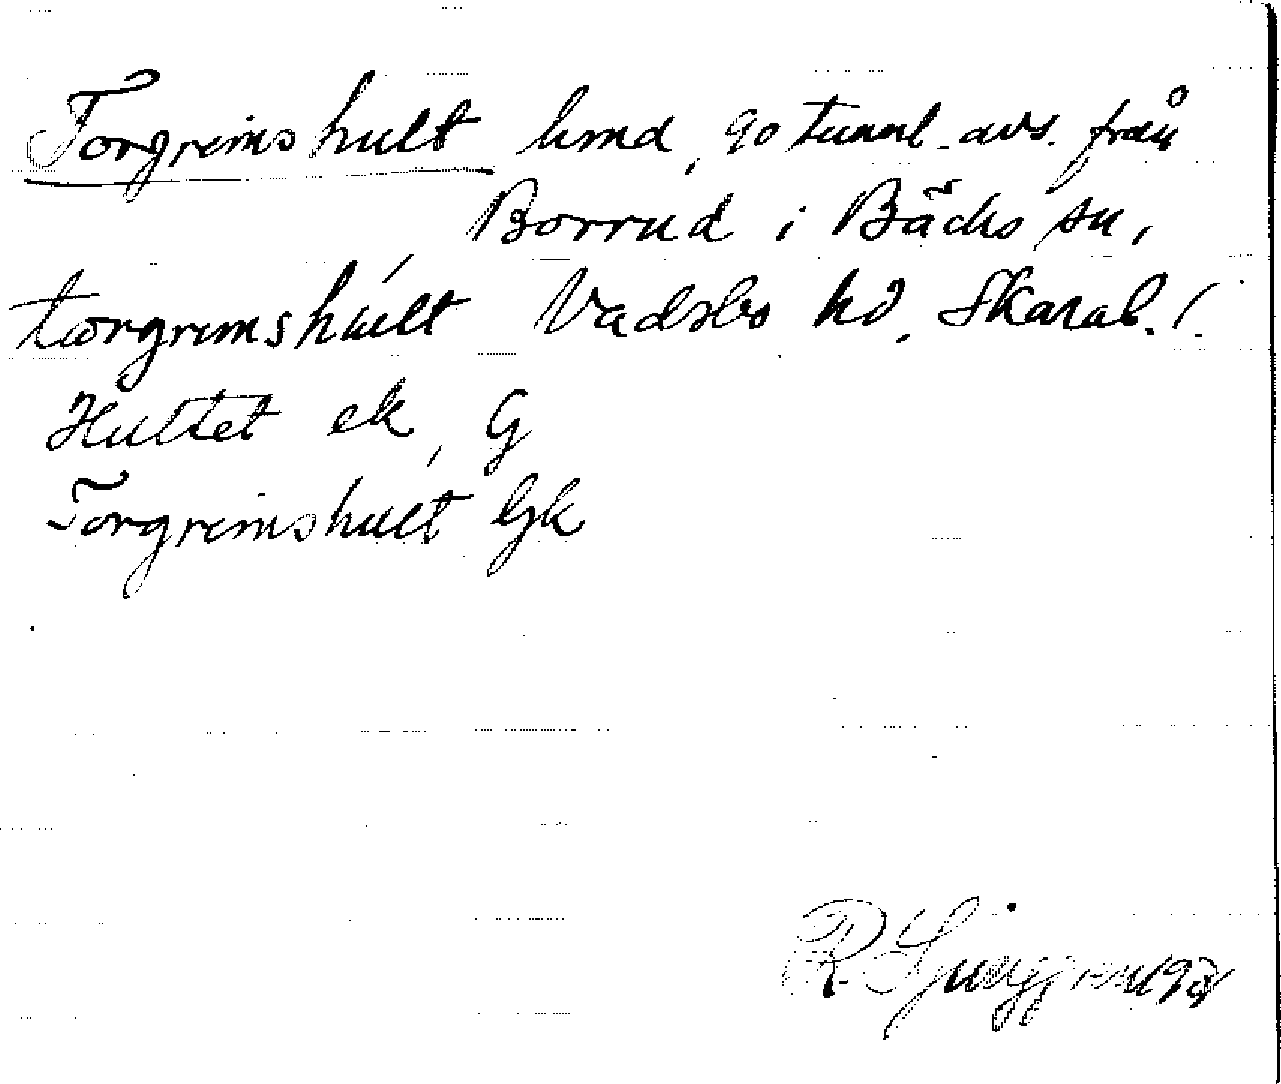 Torgrimshult lmd, 90 tunnl. avs. från
Borrud i Bäcks sn,
tårgrimshúlt Vadsbo hd. Skarab. l.
Hultet ek, G
Torgrimshult Gk
R Ljunggren